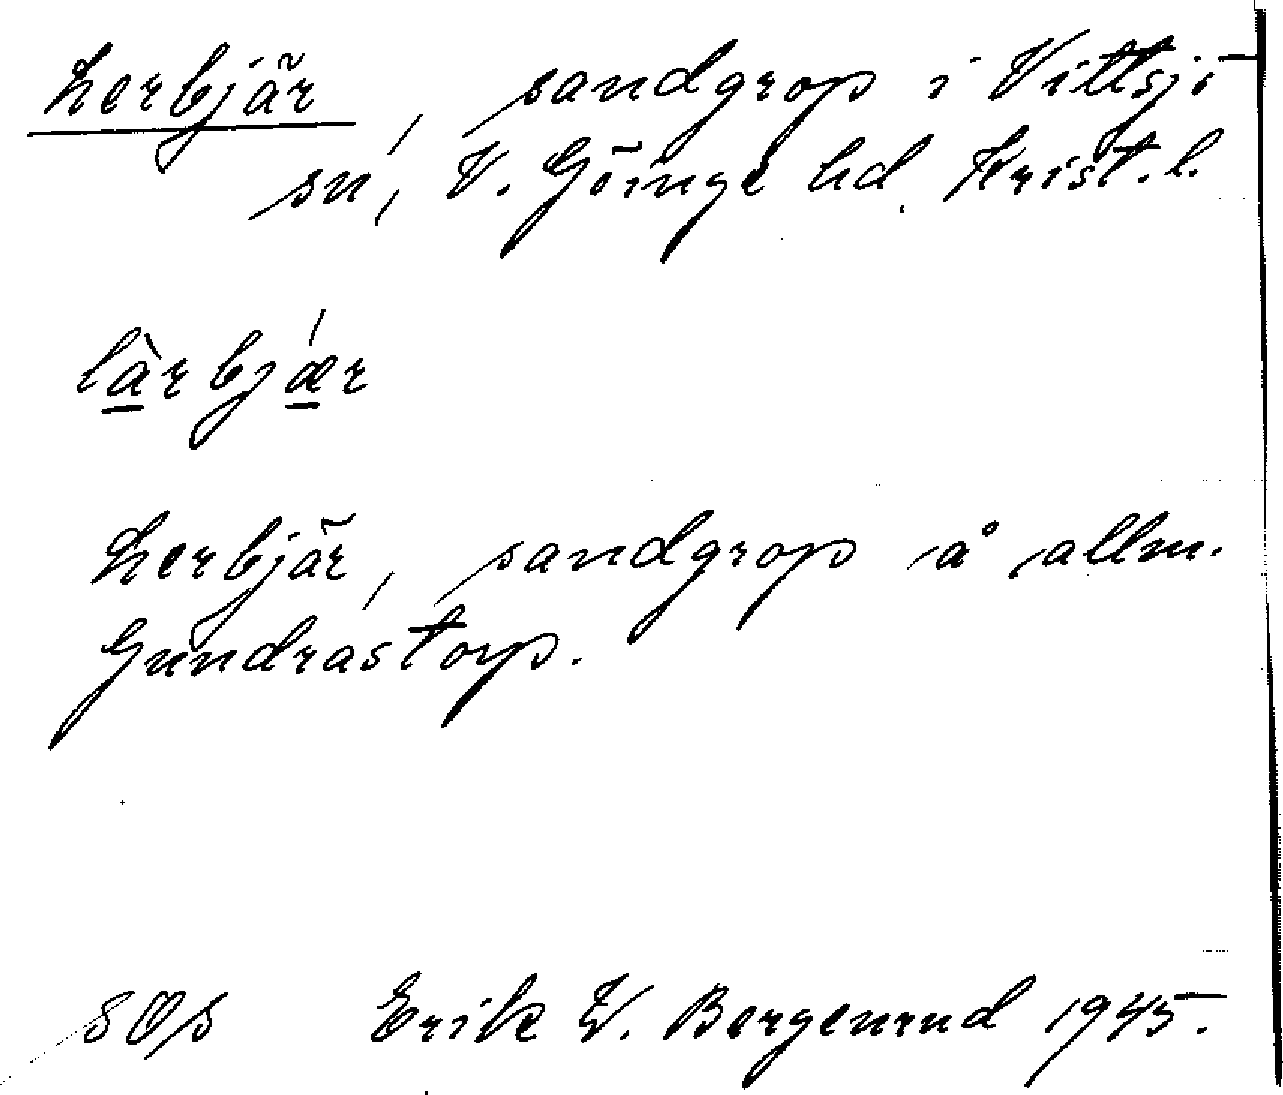 Lerbjär, sandgrop i Vittsjö
sn, V. Göinge hd, Krist. l.
làrbjǽr
Lerbjär, sandgrop å allm.
Gundrastorp.
Erik W. Bergenrud 1945.